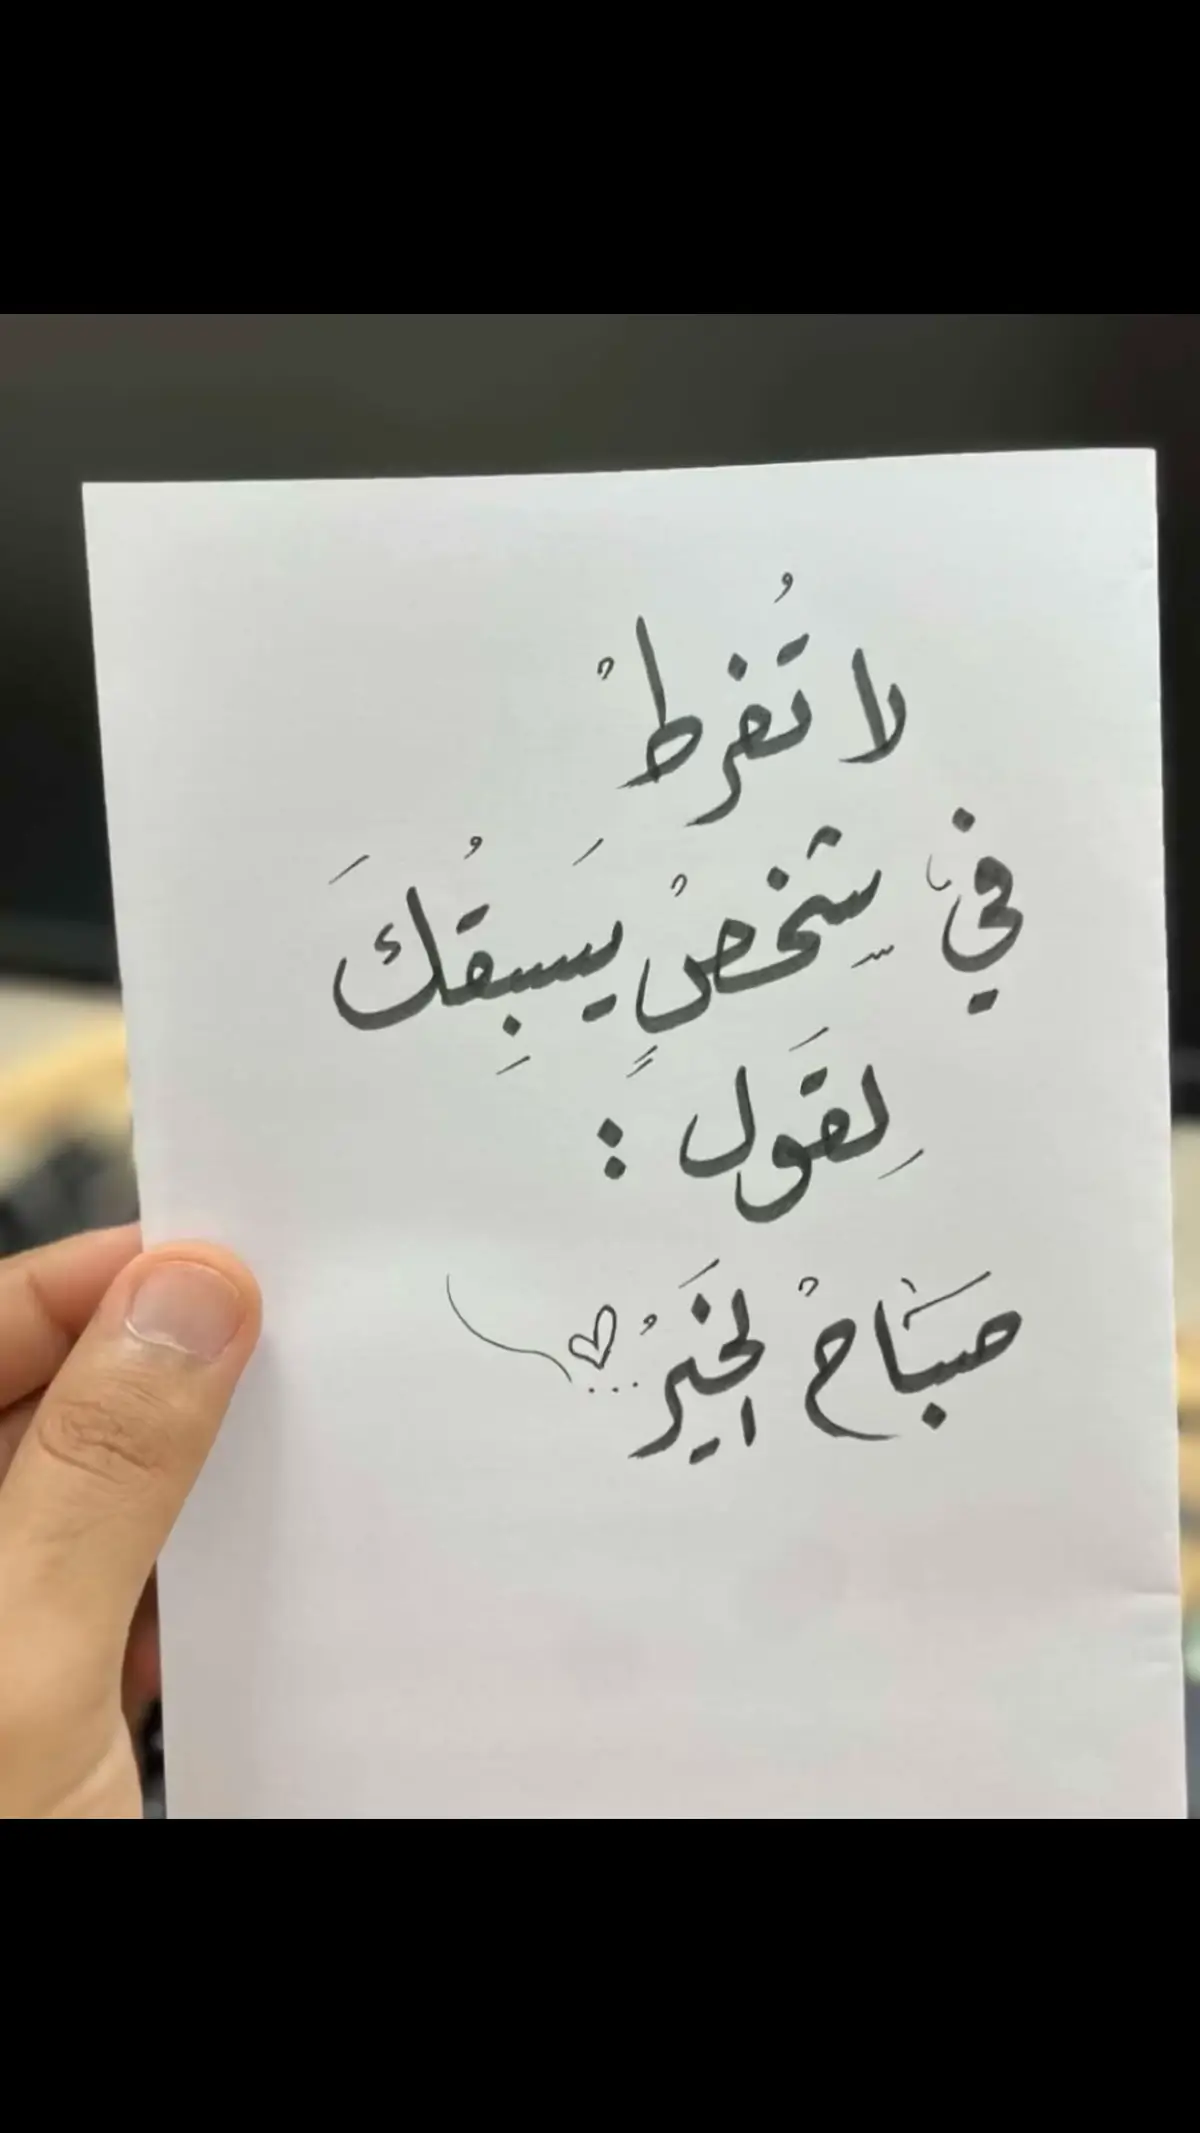 لا تُفرطْ
في شخْصٍ يَسبِقُكَ
لِقَول :
صَبَاحْ الخَيرُ...